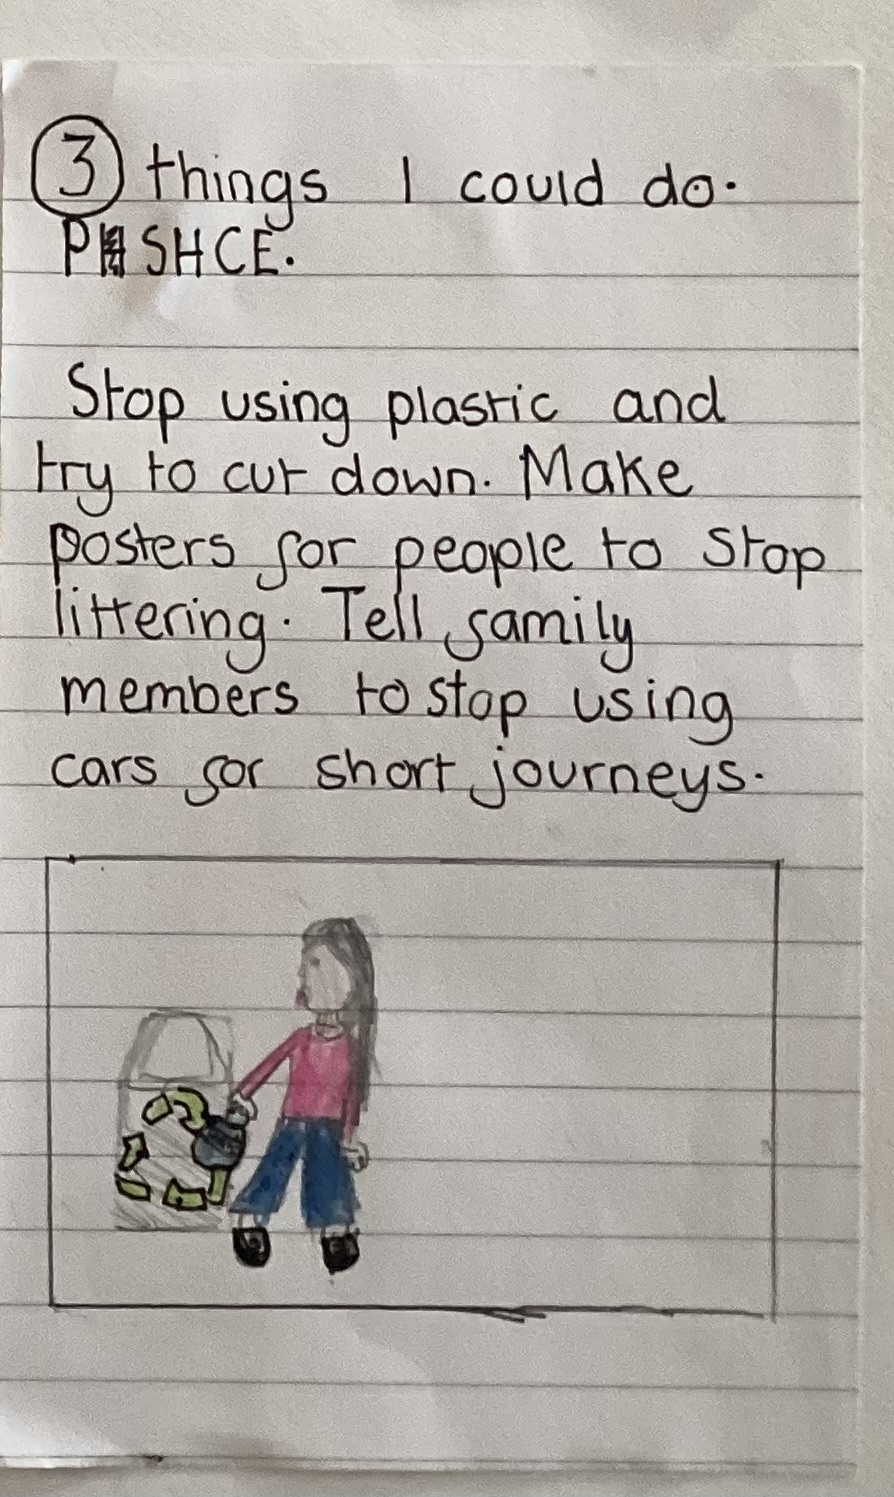 3 things I could do.
PSHCE.
Stop using plastic and
try to cut down. Make
posters for people to stop
littering. Tell family
members to stop using
cars for short journeys.